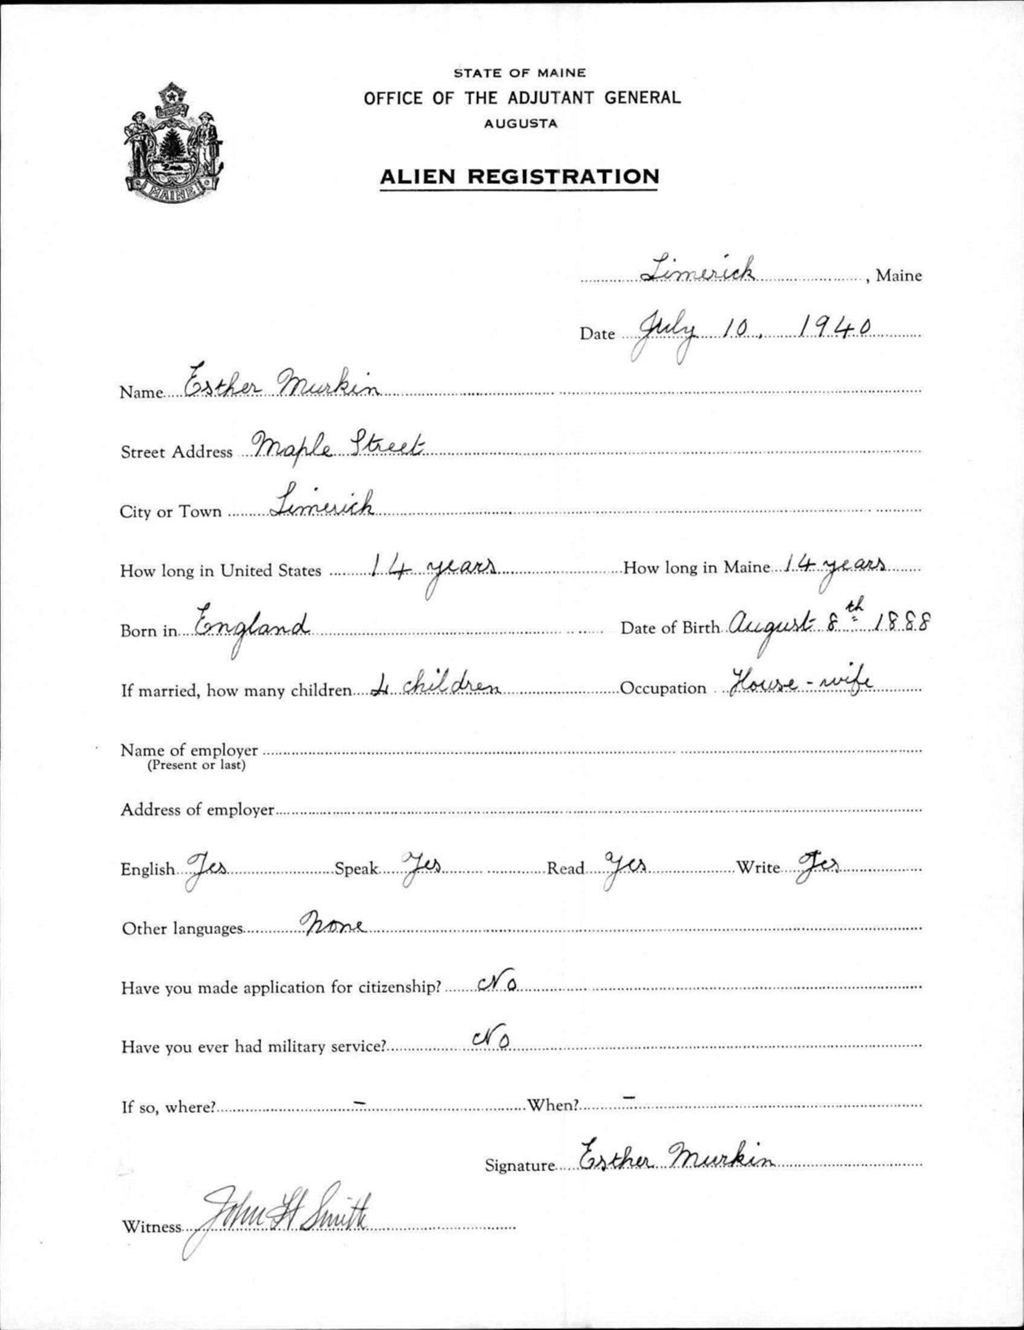 STATE OF MAINE
OFFICE OF THE ADJUTANT GENERAL
AUGUSTA
ALIEN REGISTRATION
MAINE
Limerick, Maine
Date July 10, 1940
Name Esther Murkin
Street Address Maple Street
City or Town Limerick
How long in United States 14 years How long in Maine 14 years
Born in England Date of Birth August 8th 1888
If married, how many children 4 children Occupation House-wife
Name of employer
(Present or last)
Address of employer
English Yes Speak Yes Read Yes Write Yes
Other languages None
Have you made application for citizenship? No
Have you ever had military service? No
If so, where? – When? –
Signature Esther Murkin
Witness John H Smith